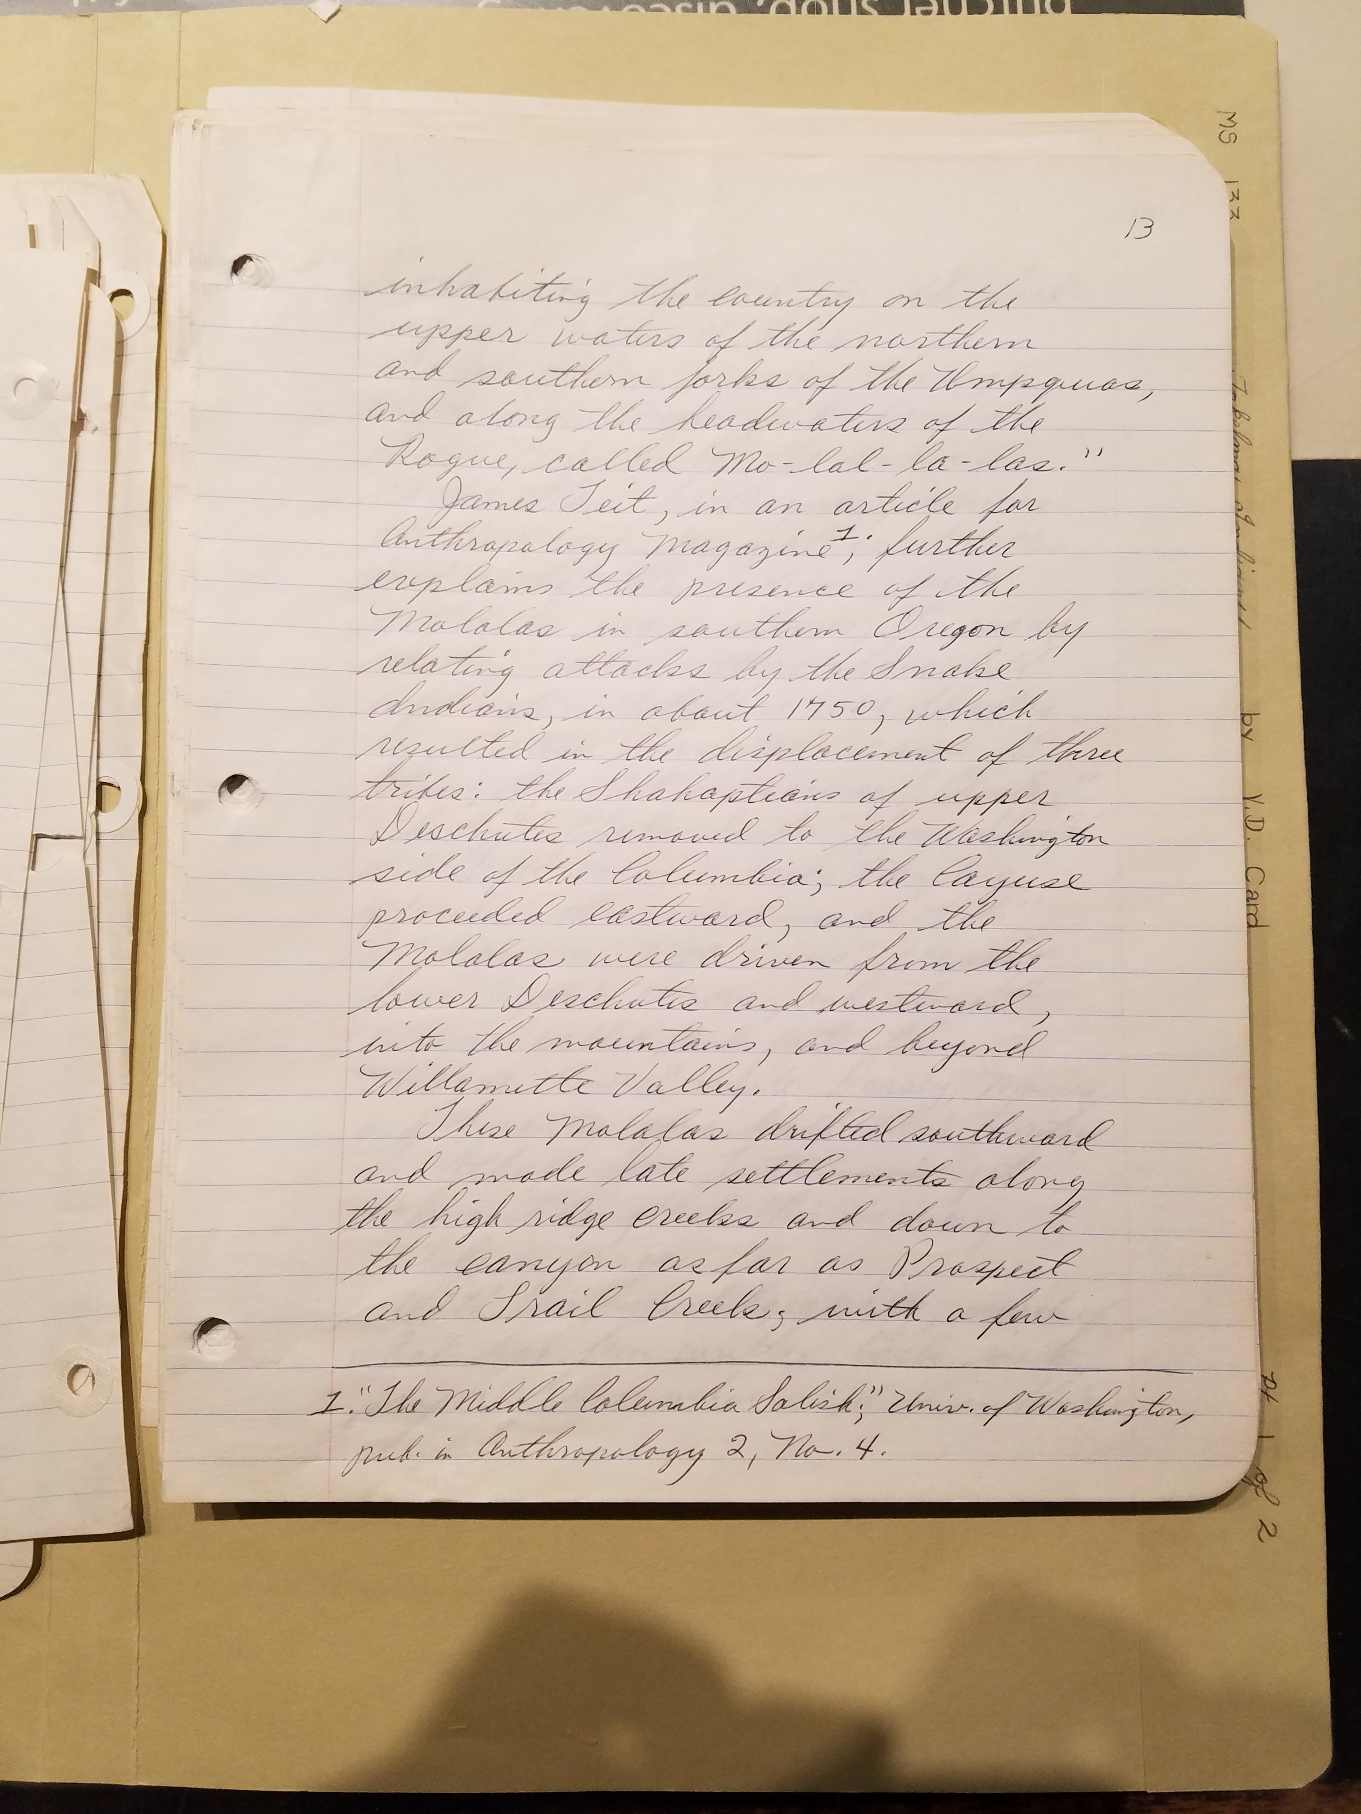 butcher shop, discover
13
inhabiting the country on the
upper waters of the northern
and southern forks of the Umpquas,
and along the headwaters of the
Rogue, called Mo-lal-la-las."
James Teit, in an article for
Anthropology Magazine¹; further
explains the presence of the
Molalas in southern Oregon by
relating attacks by the Snake
Indians, in about 1750, which
resulted in the displacement of three
tribes: the Shahaptians of upper
Deschutes removed to the Washington
side of the Columbia; the Cayuse
proceeded eastward, and the
Molalas were driven from the
lower Deschutes and westward,
into the mountains, and beyond
Willamette Valley.
These Molalas drifted southward
and made late settlements along
the high ridge creeks and down to
the canyon as far as Prospect
and Trail Creek; with a few
1. "The Middle Columbia Salish;" Univ. of Washington,
pub. in Anthropology 2, No. 4.
MS 133 by Y.D. Card pt 1 of 2